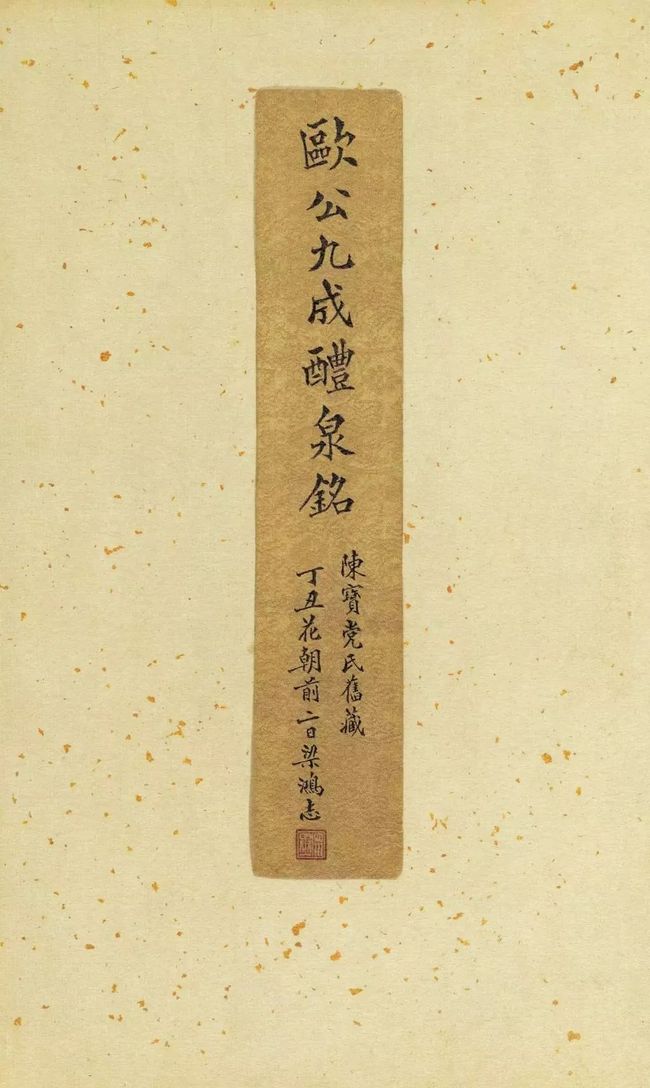 歐公九成醴泉銘
陳寶 氏舊藏
丁丑花朝前二日梁鴻志